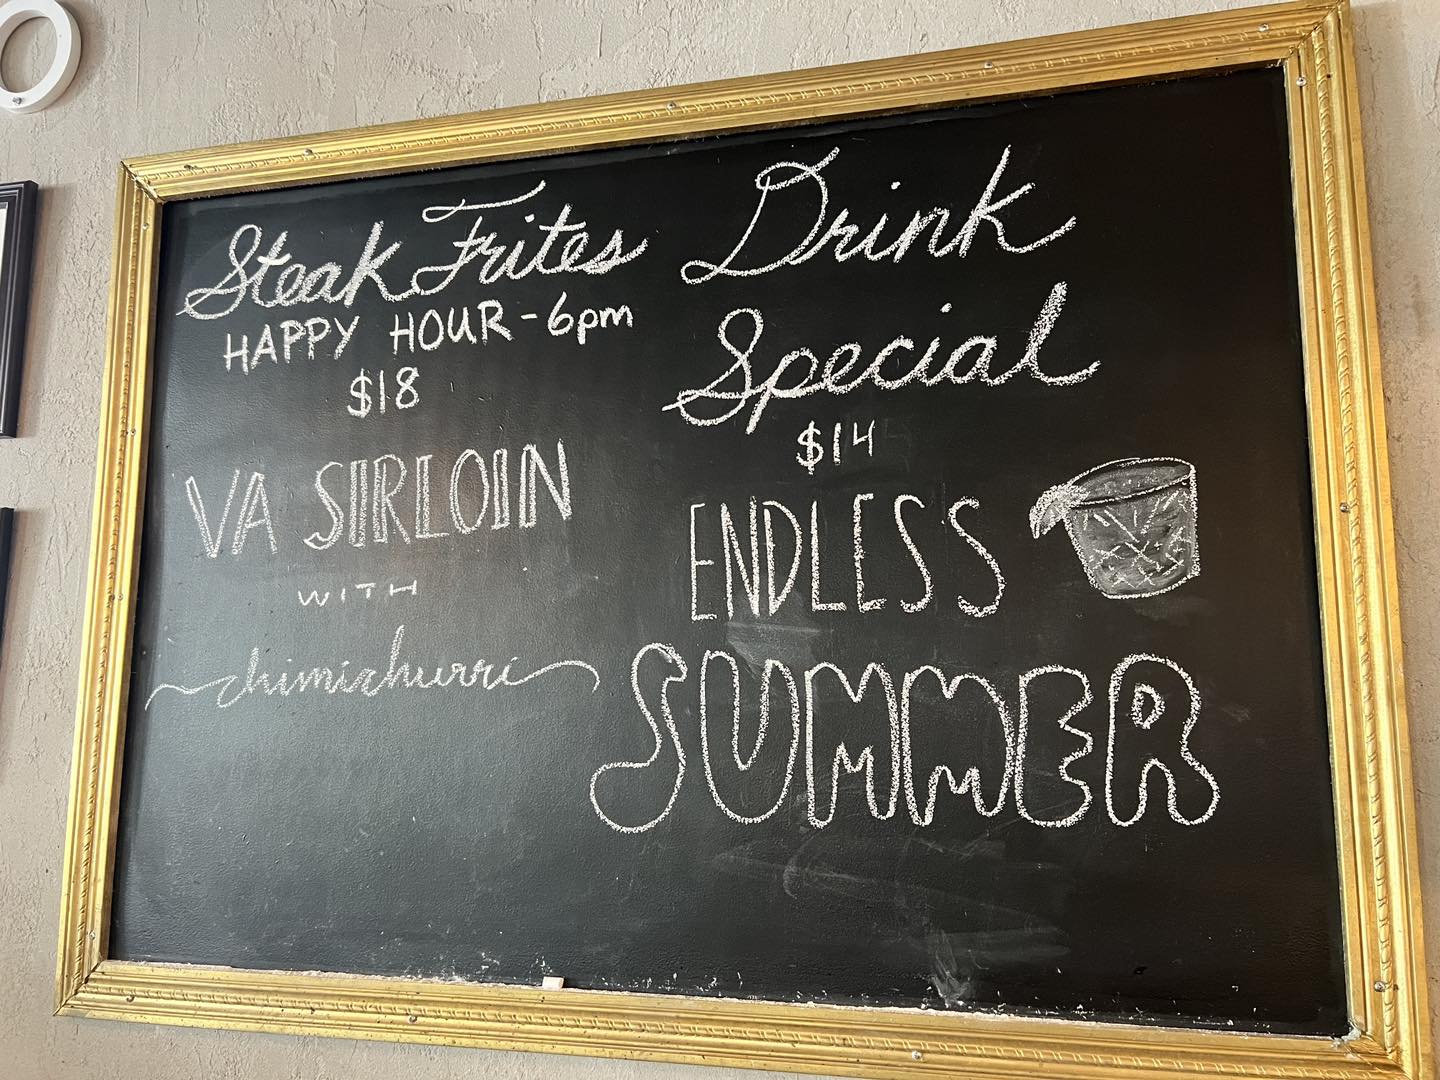 Steak Frites
HAPPY HOUR - 6pm
$18
VA SIRLOIN
WITH
chimichurri
Drink
Special
$14
ENDLESS
SUMMER